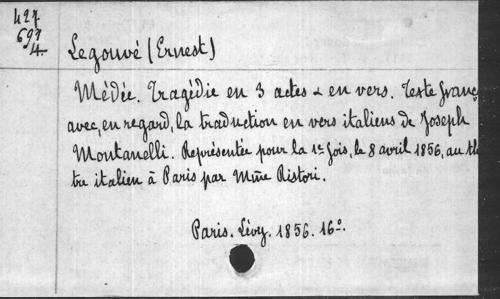 427
697
4.
Legouvé (Ernest)
Médée. Tragédie en 3 actes & en vers. Texte franç
avec, en regard, la traduction en vers italiens de Joseph
Montanelli. Représentée pour la 1e fois, le 8 avril 1856, au thé
tre italien à Paris par Mme Ristori.
Paris. Lévy. 1856. 16o.